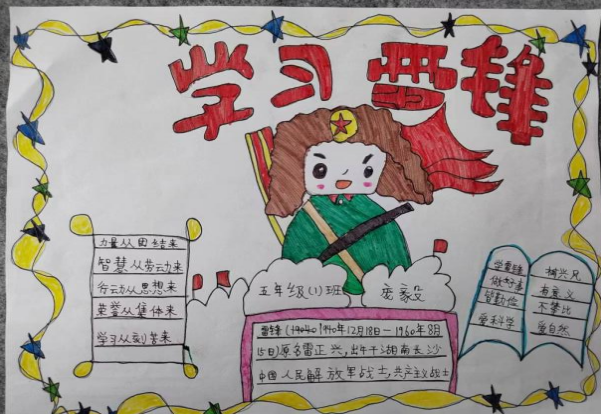 学习 雷锋
力量从团结来
智慧从劳动来
行动从思想来
荣誉从集体来
学习从刻苦来
五年级(1)班
雷锋(1940年12月18日—1960年8月
15日)原名雷正兴,出生于湖南长沙
中国人民解放军战士,共产主义战士
学雷锋
做好事
爱科学
有意义
不攀比
爱自然